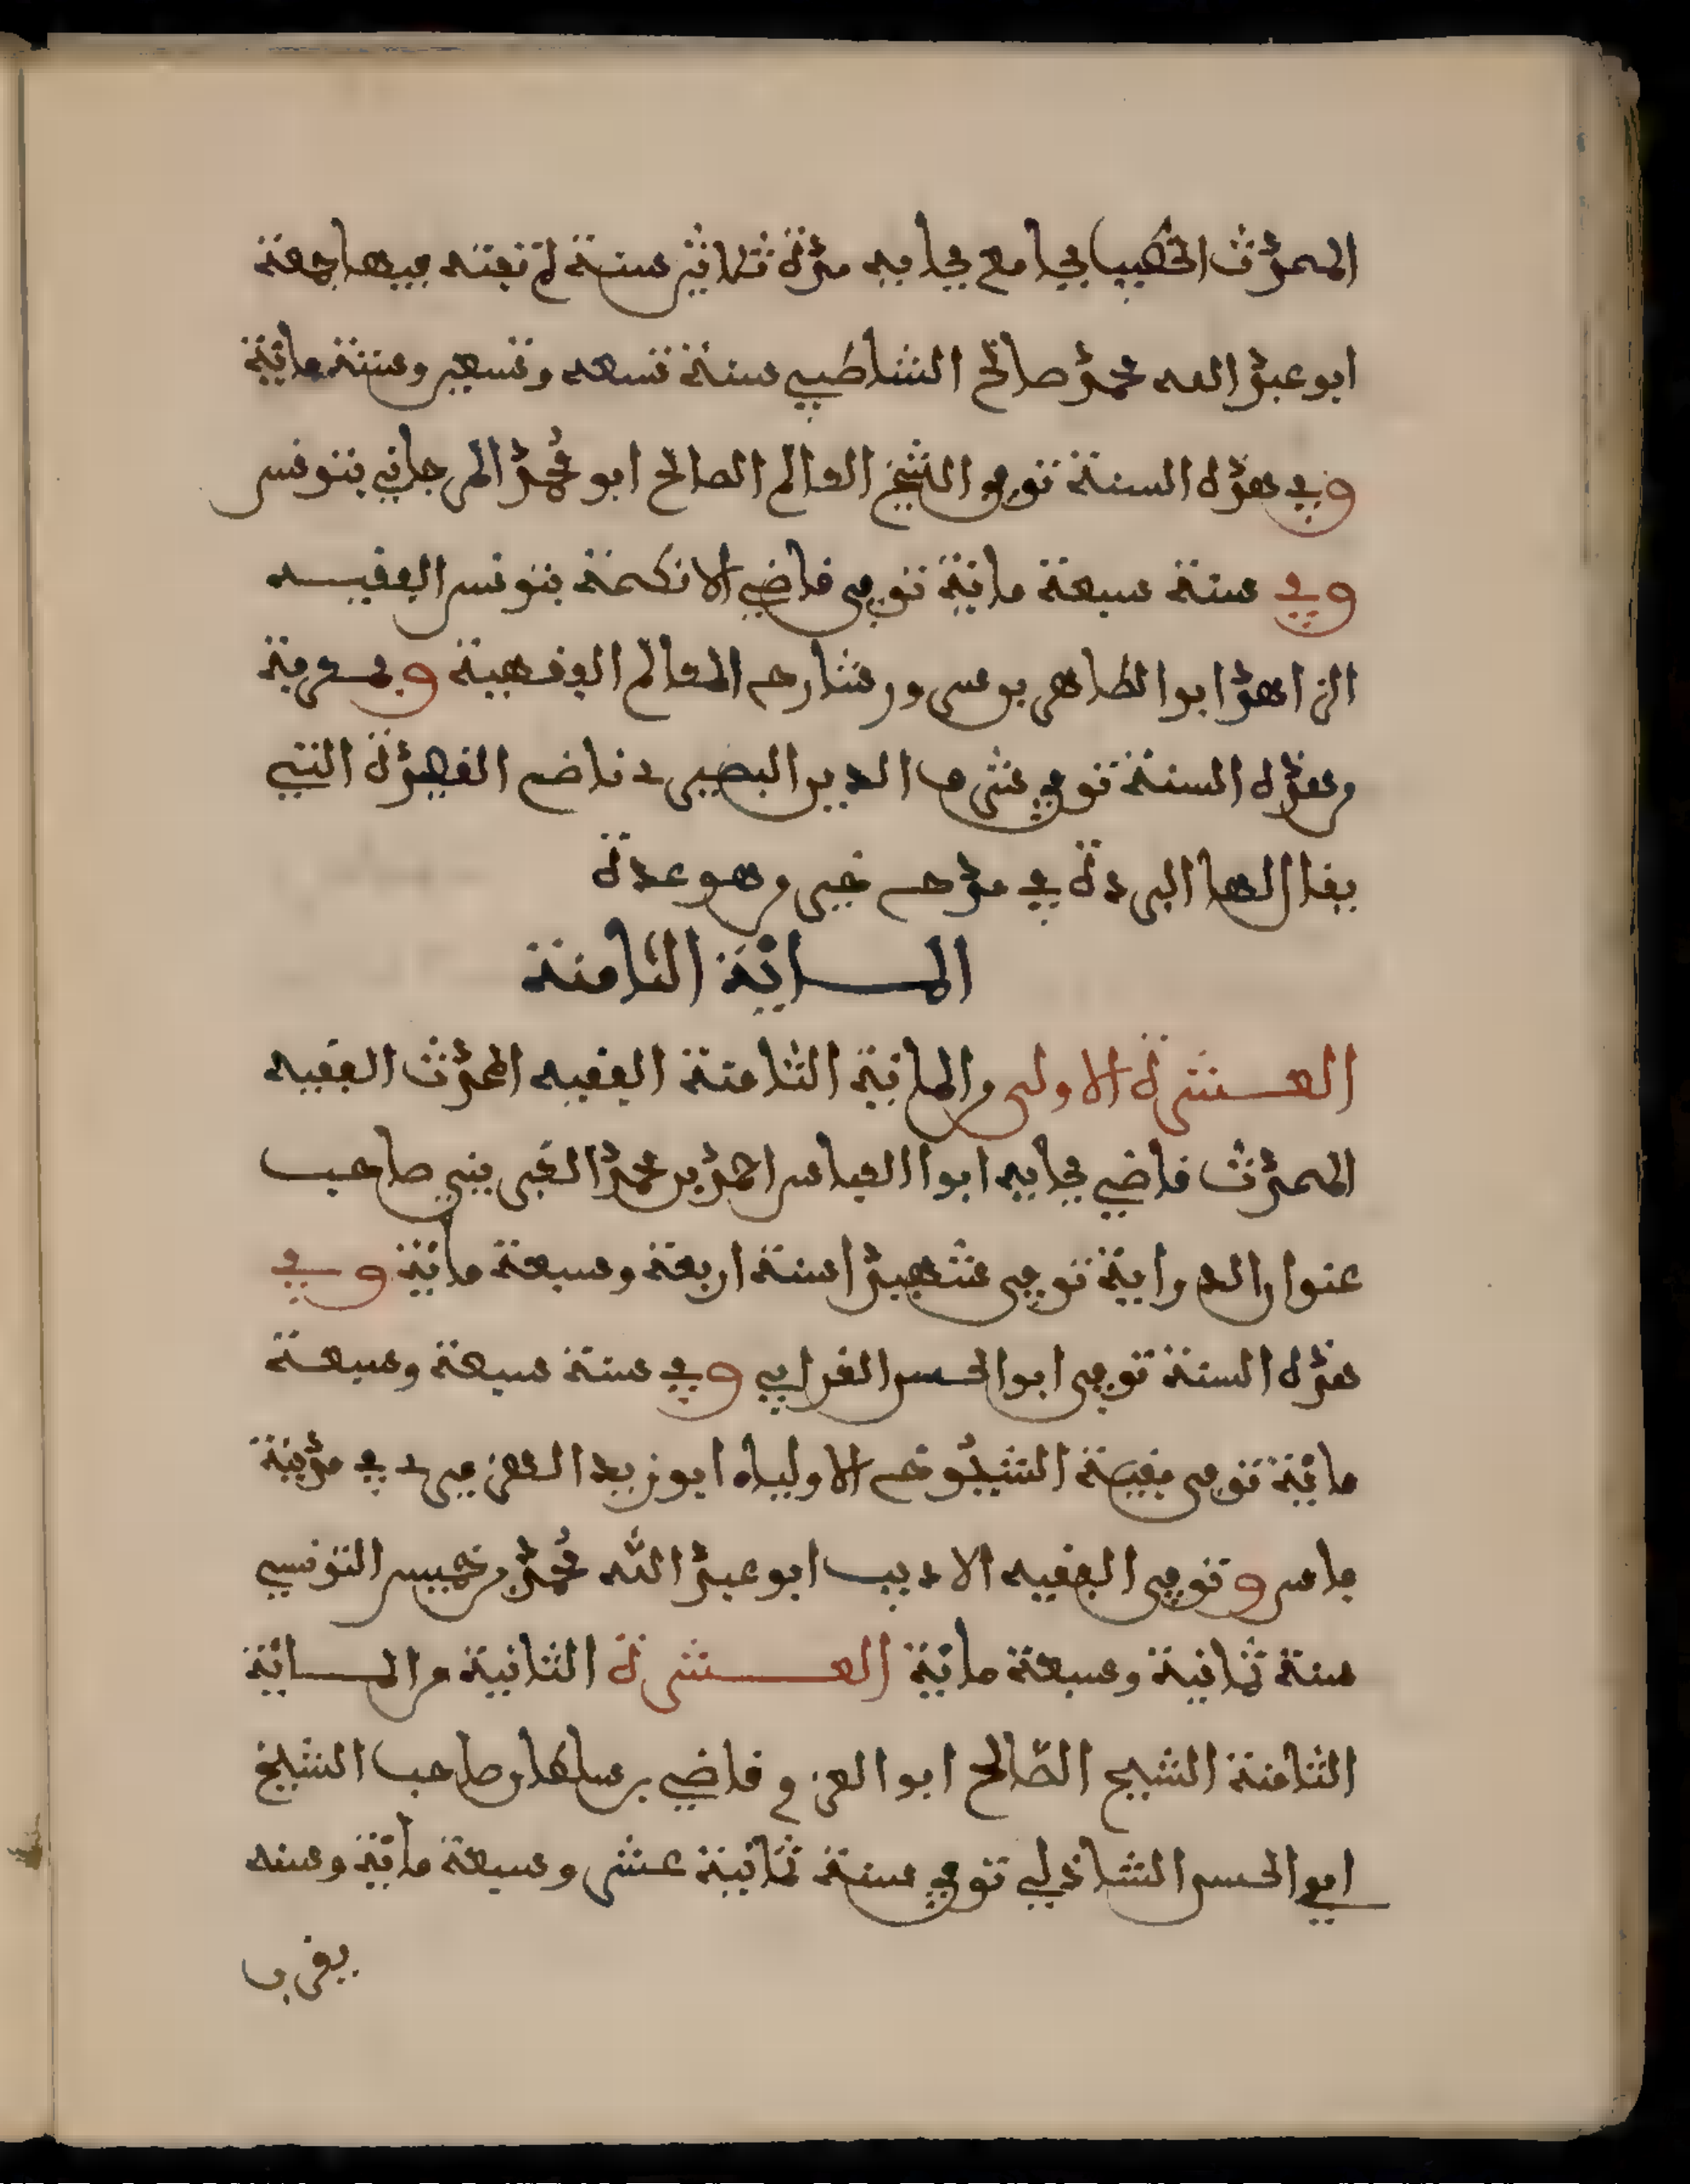 المحدث الخطيب بجامع بجايه مدة ثلاثين سنة لم تفته فيها جمعة
ابو عبد الله محمد صالح الشاطبي سنة تسعه وتسعين وستة مائية
وفي هذه السنة توفي الشيخ العالم الصالح ابو محمد المرجاني بتونس
وفي سنة سبعة مائية توفي قاضي الانكحة بتونس الفقيه
الزاهد ابوا الطاهر بوسرور شارح المعالم الفقهية وبعرمة
وهذه السنة توفي شرف الدين البصيري ناضم القصيدة التي
يقال لها البردة في مدح خير وهو عدة
المائة الثامنة
العشرة الاولى والمائية الثامنة الفقيه المحدث الفقيه
المحدث قاضي بجايه ابوا العباس احمد بن محمد الغبريني صاحب
عنوان الدراية توفي شهيدا سنة اربعة وسبعة مائية وفي
هذه السنة توفي ابو الحسن القرافي وفي سنة سبعة وسبعة
مائية توفي بقيصة الشيوخ الاولياء ابو زيد الهزميري في مدينة
فاس وتوفي الفقيه الاديب ابو عبد الله محمد بن خميس التونسي
سنة ثمانية وسبعة مائية العشرة الثانية والمائية
الثامنة الشيح الصالح ابو العزم قاضي بن سلطان صاحب الشيخ
ابي الحسن الشاذلي توفي سنة ثمانية عشر وسبعة مائية وسنه
يقرب